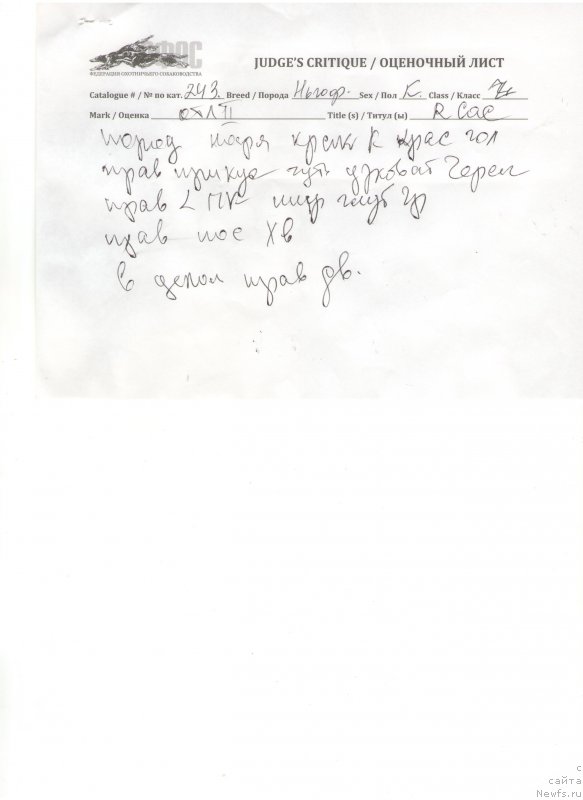 ФОС
ФЕДЕРАЦИЯ ОХОТНИЧЬЕГО СОБАКОВОДСТВА
JUDGE'S CRITIQUE / ОЦЕНОЧНЫЙ ЛИСТ
Catalogue # / № по кат. 243. Breed / Порода Ньюф. Sex / Пол К Class / Класс
Mark / Оценка отл II Title (s) / Титул (ы) R CAC
пород наря креп к крас гол
прав прикус чуть узковат череп
прав L ПК шир глуб гр
прав пос хв
в делом прав дв.
с
сайта
Newfs.ru